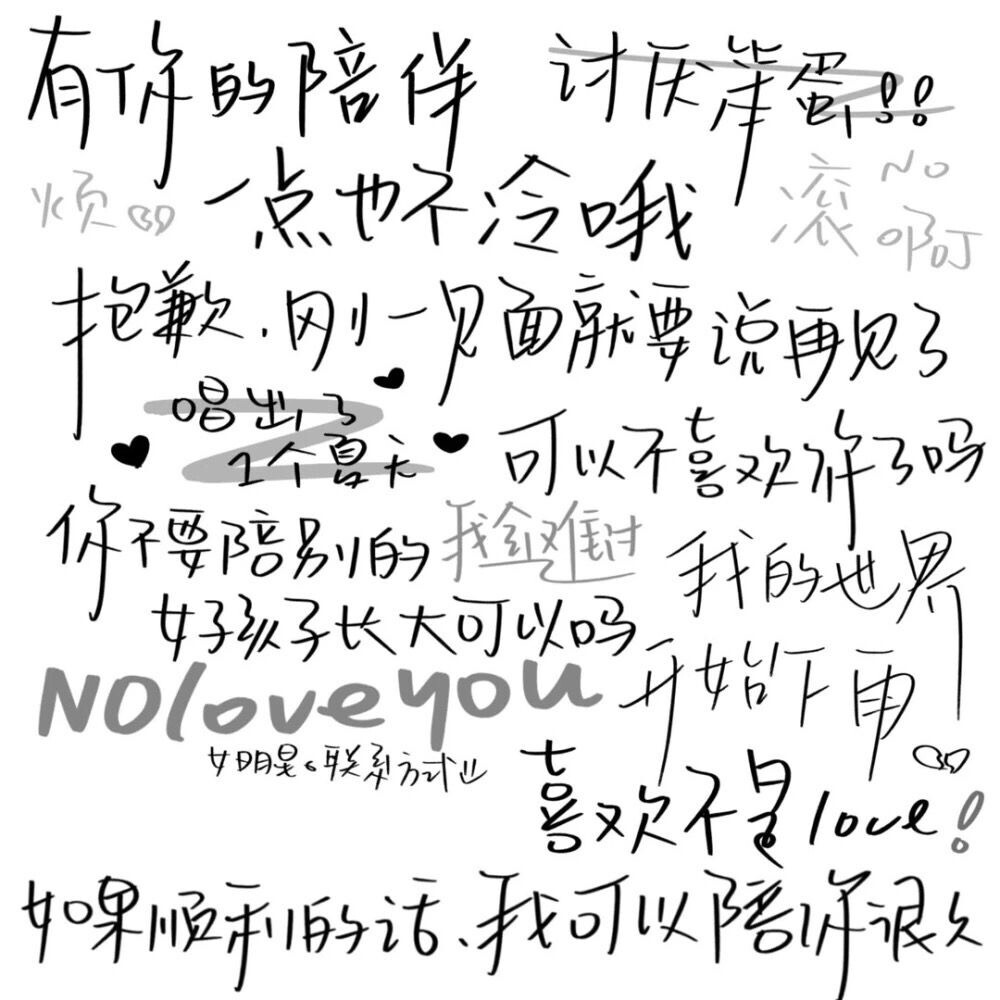 有你的陪伴
讨厌笨蛋!!
烦
一点也不冷哦
滚
NO
啊
抱歉.刚一见面就要说再见了
唱出了
1个夏天
可以不喜欢许了吗
你不要陪别的
我会难过
女孩子长大可以吗
我的世界
开始下雨
NO love you
女明星。联系方式
喜欢不是love!
如果顺利的话、我可以陪你很久